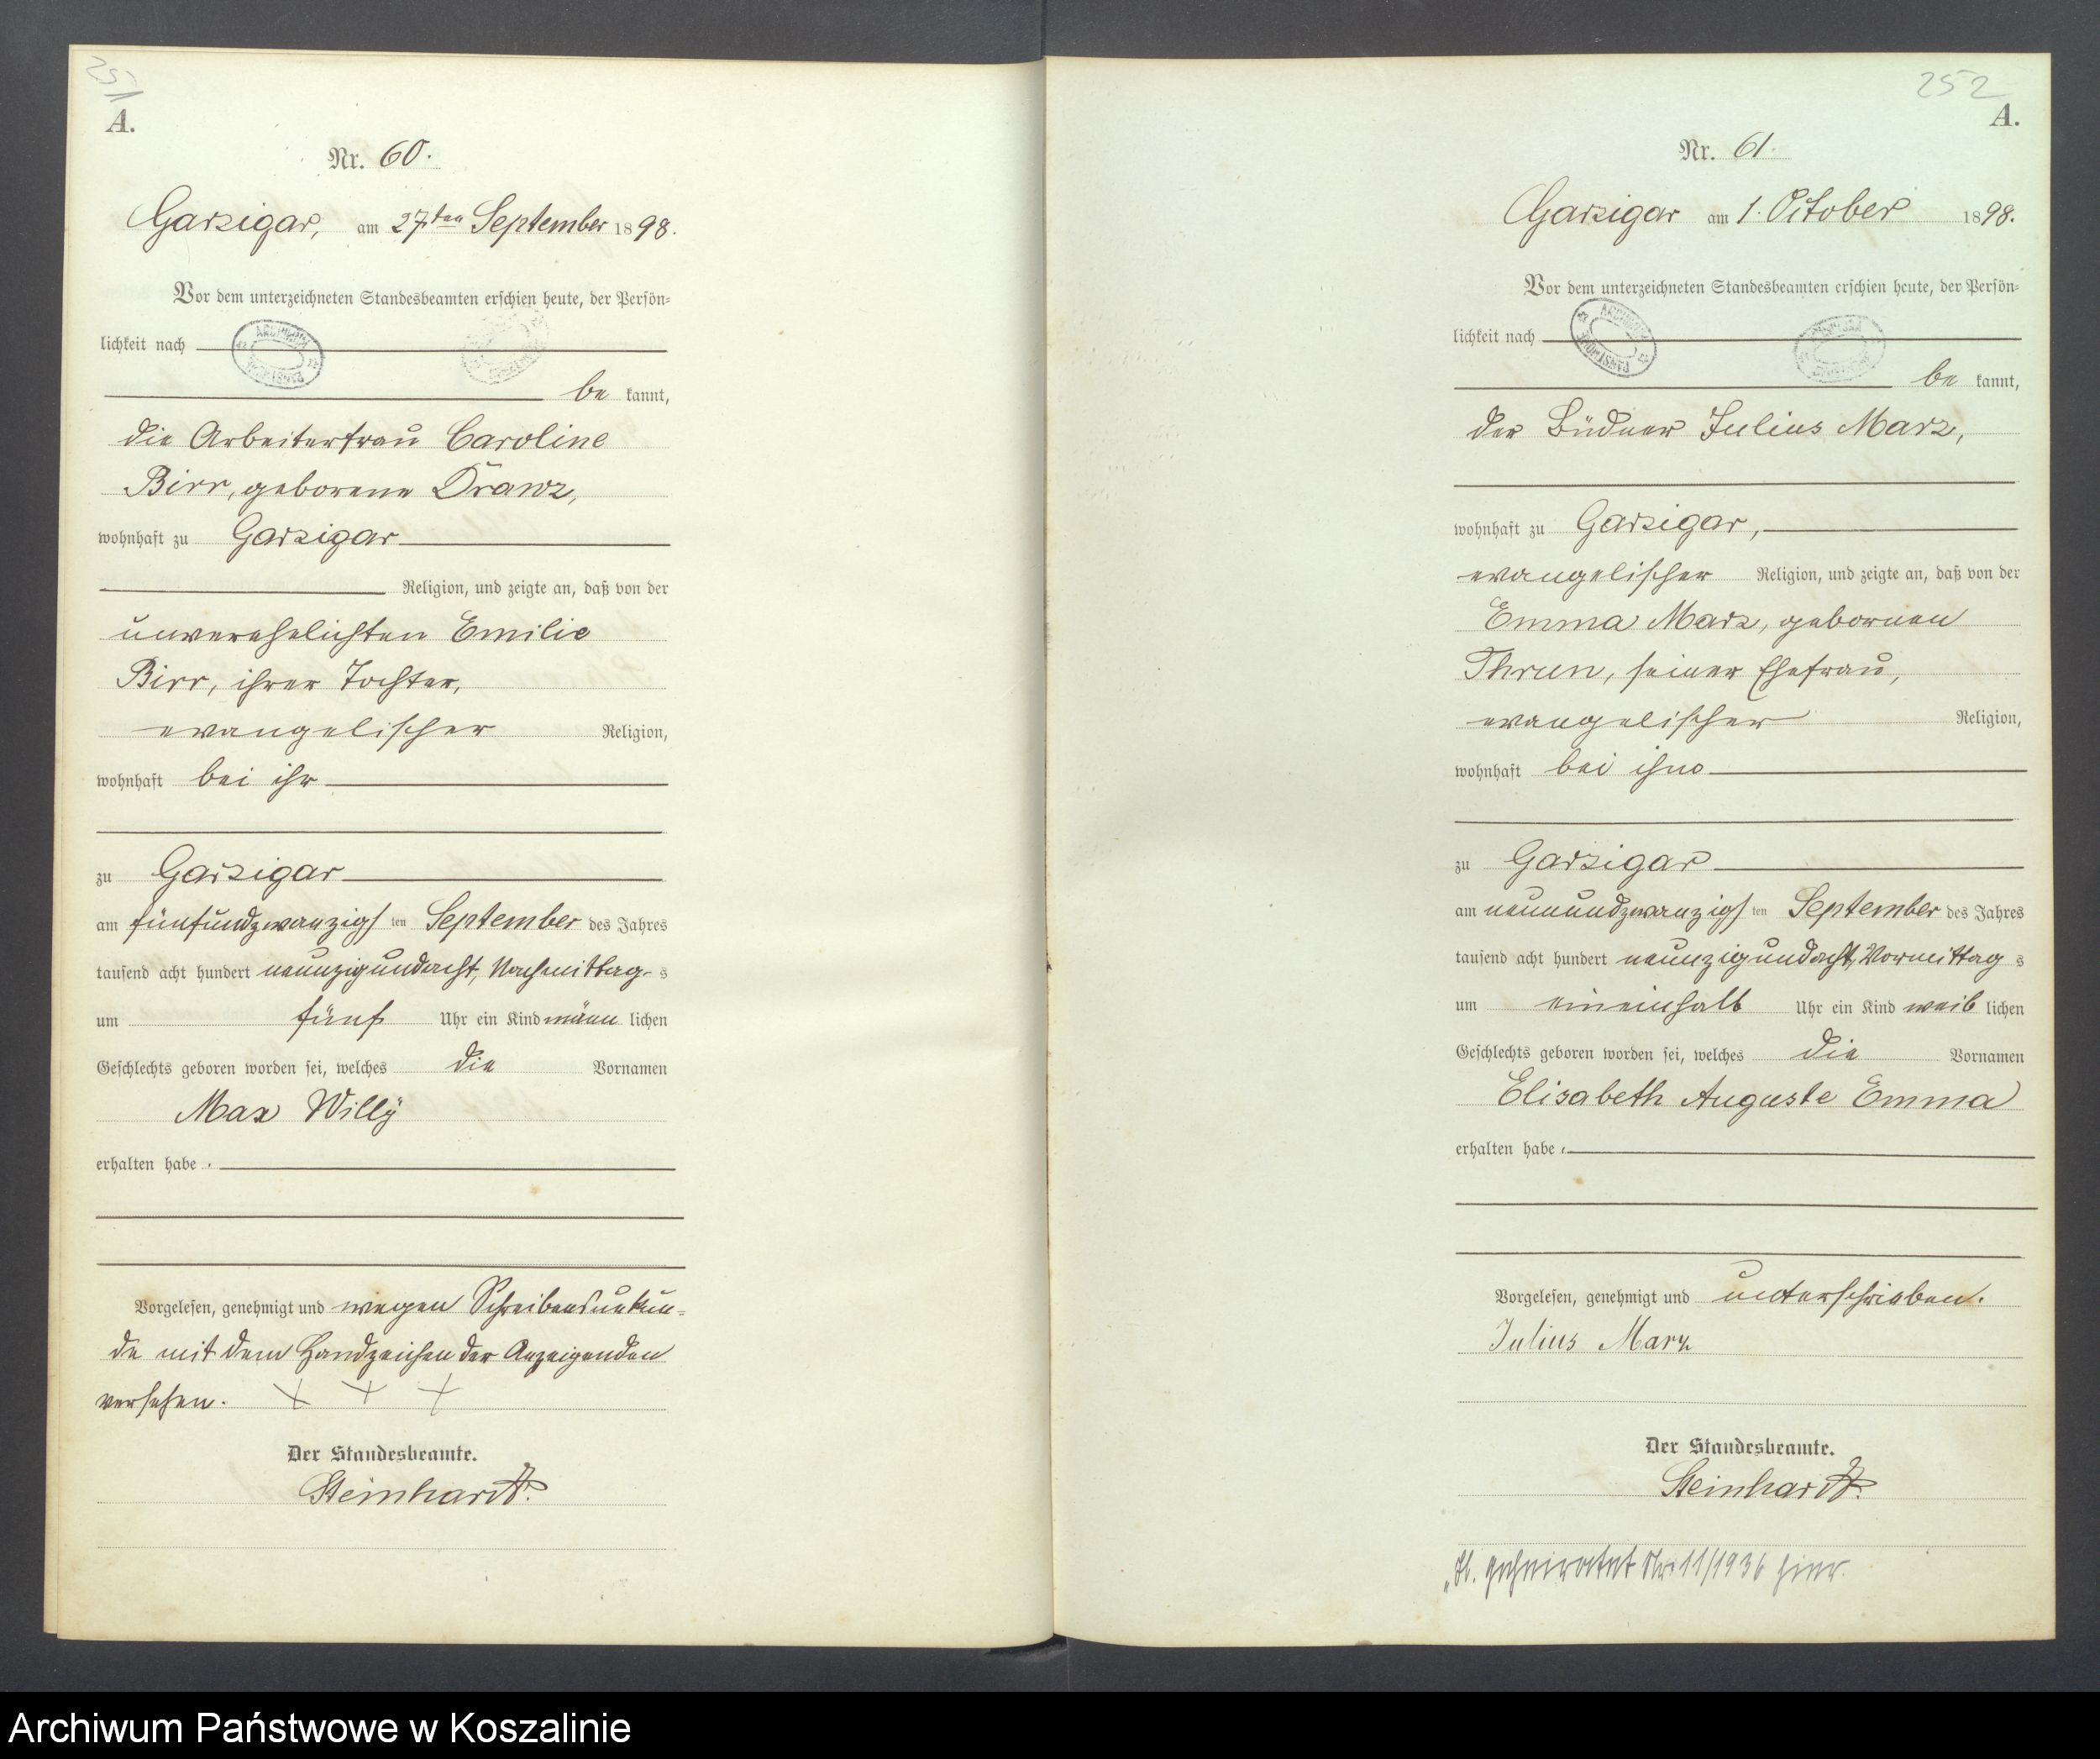 251
A.
Nr. 60.
Garzigar, am 27.ten September 1898.
Vor dem unterzeichneten Standesbeamten erschien heute, der Persön-
lichkeit nach
be kannt,
die Arbeiterfrau Caroline
Birr, geborene Drawz,
wohnhaft zu Garzigar
Religion, und zeigte an, daß von der
unverehelichten Emilie
Birr, ihrer Tochter,
evangelischer Religion,
wohnhaft bei ihr
zu Garzigar
am fünfundzwanzigsten September des Jahres
tausend acht hundert neunzigundacht, Nachmittags
um fünf Uhr ein Kind männlichen
Geschlechts geboren worden sei, welches die Vornamen
Max Willy
erhalten habe.
Vorgelesen, genehmigt und wegen Schreibensunkun-
de mit dem Handzeichen der Anzeigenden
versehen. + + +
Der Standesbeamte.
Steinhardt.
252
A.
Nr. 61.
Garzigar am 1. October 1898.
Vor dem unterzeichneten Standesbeamten erschien heute, der Persön-
lichkeit nach
be kannt,
der Büdner Julius Marz,
wohnhaft zu Garzigar,
evangelischer Religion, und zeigte an, daß von der
Emma Marz, gebornen
Thrun, seiner Ehefrau,
evangelischer Religion,
wohnhaft bei ihm
zu Garzigar
am neunundzwanzigsten September des Jahres
tausend acht hundert neunzigundacht, Vormittags
um eineinhalb Uhr ein Kind weiblichen
Geschlechts geboren worden sei, welches die Vornamen
Elisabeth Auguste Emma
erhalten habe.
Vorgelesen, genehmigt und unterschrieben.
Julius Marz
Der Standesbeamte.
Steinhardt.
geheiratet Nr. 11/1936 hier.
Archiwum Państwowe w Koszalinie